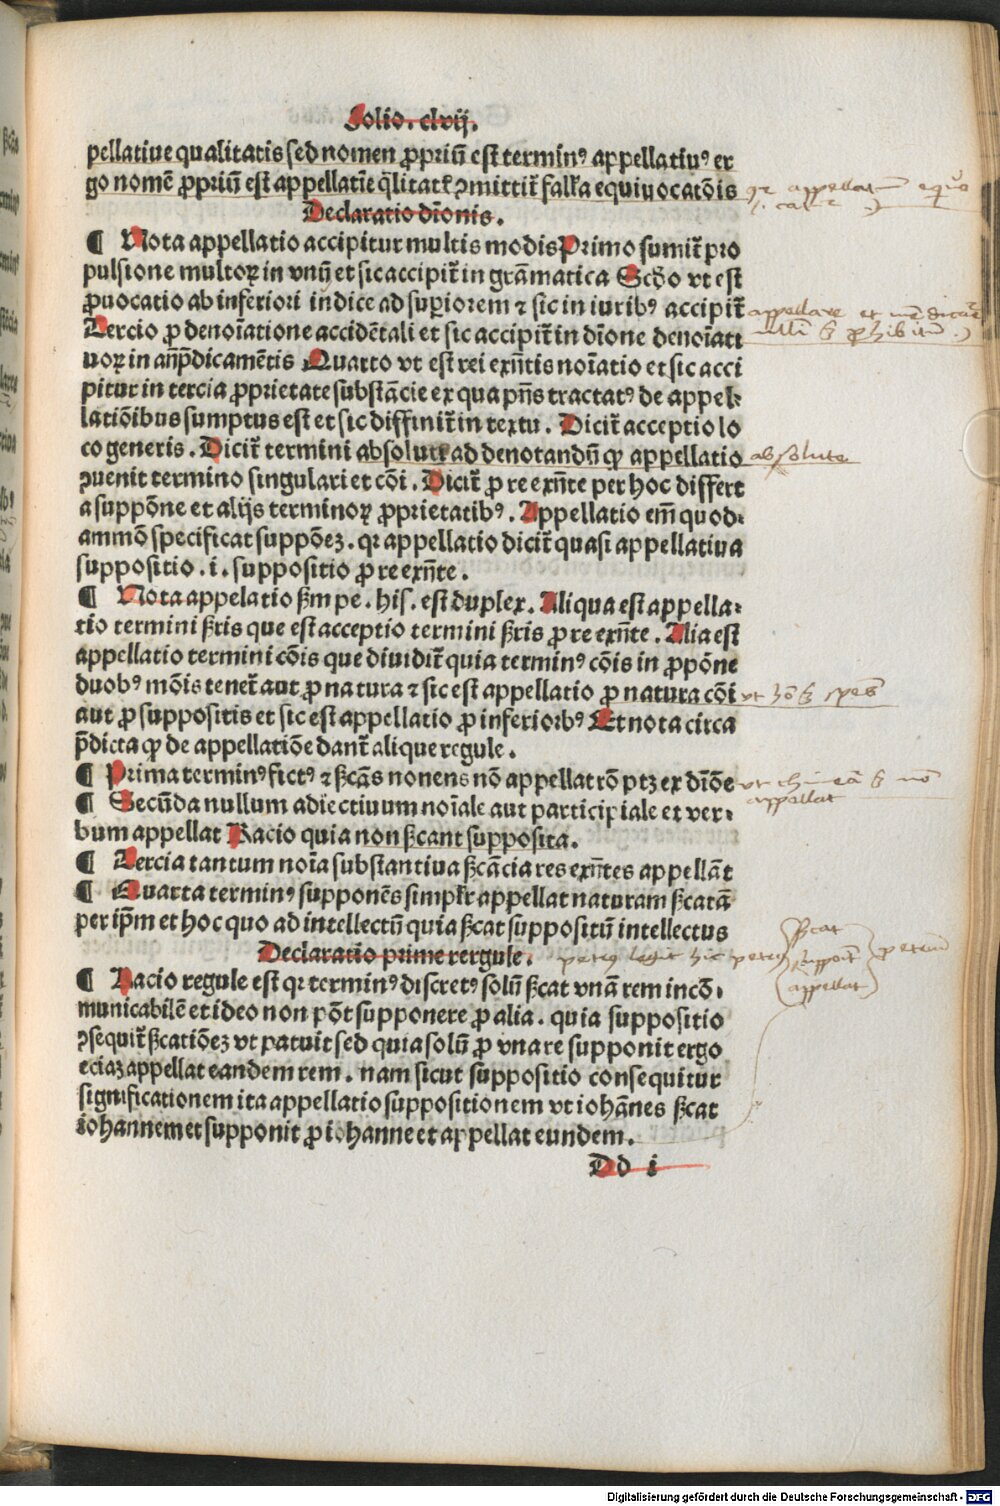 Folio. clvij.
pellatiue qualitatis sed nomen ꝓpriū est terminꝰ appellatiuꝰ er
go nomē ꝓpriū est appellatīe q̄litatꝭ ꝯmittit̄ fall'a equiuocatōis
Declaratio dīonis.
¶ Nota appellatio accipitur multis modis Primo sumit̄ pro
pulsione multoꝝ in vnū et sic accipit̄ in grāmatica Scḋo vt est
ꝓuocatio ab inferiori indice ad superiorem ⁊ sic in iuribꝰ accipit̄
Tercio ꝓ denoīatione accidētali et sic accipit̄ in dīone denoīati
uoꝝ in an̄p̄dicamētis Quarto vt est rei exn̄tis noīatio et sic acci
pitur in tercia ꝓprietate substācie ex qua pn̄s tractatꝰ de appel-
latiōibus sumptus est et sic diffinit̄ in textu. Dicit̄ acceptio lo
co generis. Dicit̄ termini absolute ad denotandū ꝙ appellatio
ꝯuenit termino singulari et cōi. Dicit̄ ꝓ re exn̄te per hoc differt
a suppōne et alijs terminoꝝ ꝓprietatibꝰ. Appellatio em̄ quod-
ammō specificat suppōeꝫ. qꝛ appellatio dicit̄ quasi appellatiua
suppositio .i. suppositio ꝓ re exn̄te.
¶ Nota appelatio ßm pe. his. est duplex. Aliqua est appella-
tio termini ßris que est acceptio termini ßris ꝓ re exn̄te. Alia est
appellatio termini cōis que diuidit̄ quia terminꝰ cōis in ꝓpōne
duobꝰ mōis tenet̄ aut ꝓ natura ⁊ sic est appellatio ꝓ natura cōi
aut ꝓ suppositis et sic est appellatio ꝓ inferioribꝰ Et nota circa
p̄dicta ꝙ de appellatiōe dant̄ alique regule.
¶ Prima terminꝰ fictꝰ ⁊ ßcās nonens nō appellat rō ptꝫ ex dīōe
¶ Secūda nullum adiectiuum noīale aut participiale et ver-
bum appellat Racio quia non ßcant supposita.
¶ Tercia tantum noīa substantiua ßcācia res exn̄tes appellāt
¶ Quarta terminꝰ supponēs simplꝛ appellat naturam ßcatā
per ip̄m et hoc quo ad intellectū quia ßcat suppositū intellectus
Declaratio prime rergule.
¶ Racio regule est qꝛ terminꝰ discretꝰ solū ßcat vnā rem incō-
municabilē et ideo non pōt supponere ꝓ alia. quia suppositio
ꝯsequit̄ ßcatiōeꝫ vt patuit sed quia solū ꝓ vna re supponit ergo
eciaꝫ appellat eandem rem. nam sicut suppositio consequitur
significationem ita appellatio suppositionem vt iohānes ßcat
iohannem et supponit ꝓ iohanne et appellat eundem.
Dd i
absolute
appellat
ßcat
appellat
Digitalisierung gefördert durch die Deutsche Forschungsgemeinschaft - DFG